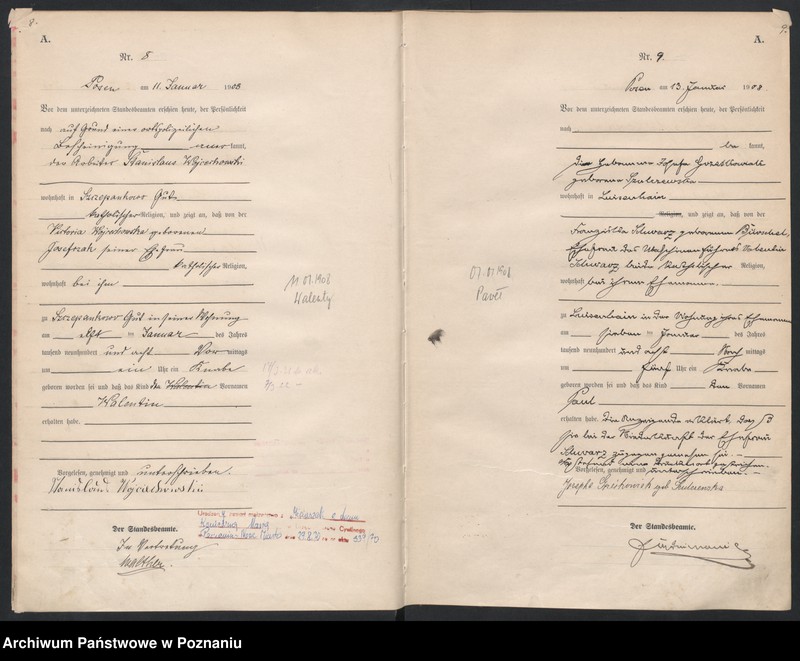 8.
A.
Nr. 8
Posen am 11. Januar 1908
Vor dem unterzeichneten Standesbeamten erschien heute, der Persönlichkeit
nach auf Grund einer ortspolizeilichen
Bescheinigung kannt,
der Arbeiter Stanislaus Wojciechowski
wohnhaft in Szczepankowo Gut
katholischer Religion, und zeigt an, daß von der
Viktoria Wojciechowska geborenen
seiner Ehefrau
katholischer Religion,
wohnhaft bei ihm
zu Szczepankowo Gut in seiner Wohnung
am elften Januar des Jahres
tausend neunhundert und acht Vor mittags
um ein Uhr ein Knabe
geboren worden sei und daß das Kind den Vornamen
Valentin
erhalten habe.
Vorgelesen, genehmigt und unterschrieben.
Der Standesbeamte.
In Vertretung
Walther
11.01.1908
Walenty
9.
A.
Nr. 9.
Posen am 13. Januar 1908
Vor dem unterzeichneten Standesbeamten erschien heute, der Persönlichkeit
nach
be kannt,
die Hebamme Josefa
geborene
wohnhaft in Luisenhain
Religion, und zeigt an, daß von der
Franziska Schwarz geborenen
Ehefrau des Maschinenführers Valentin
Schwarz, beide katholischer
wohnhaft bei ihrem Ehemanne
zu Luisenhain in der Wohnung ihres Ehemannes
am sieben ten Januar des Jahres
tausend neunhundert und acht Nach mittags
um fünf Uhr ein Knabe
geboren worden sei und daß das Kind den Vornamen
Paul
erhalten habe. Die Anzeigende erklärt, daß
sie bei der Niederkunft der Ehefrau
Schwarz zugegen gewesen sei.
Vorgelesen, genehmigt und unterschrieben.
Der Standesbeamte.
07.01.1908
Paweł
Archiwum Państwowe w Poznaniu